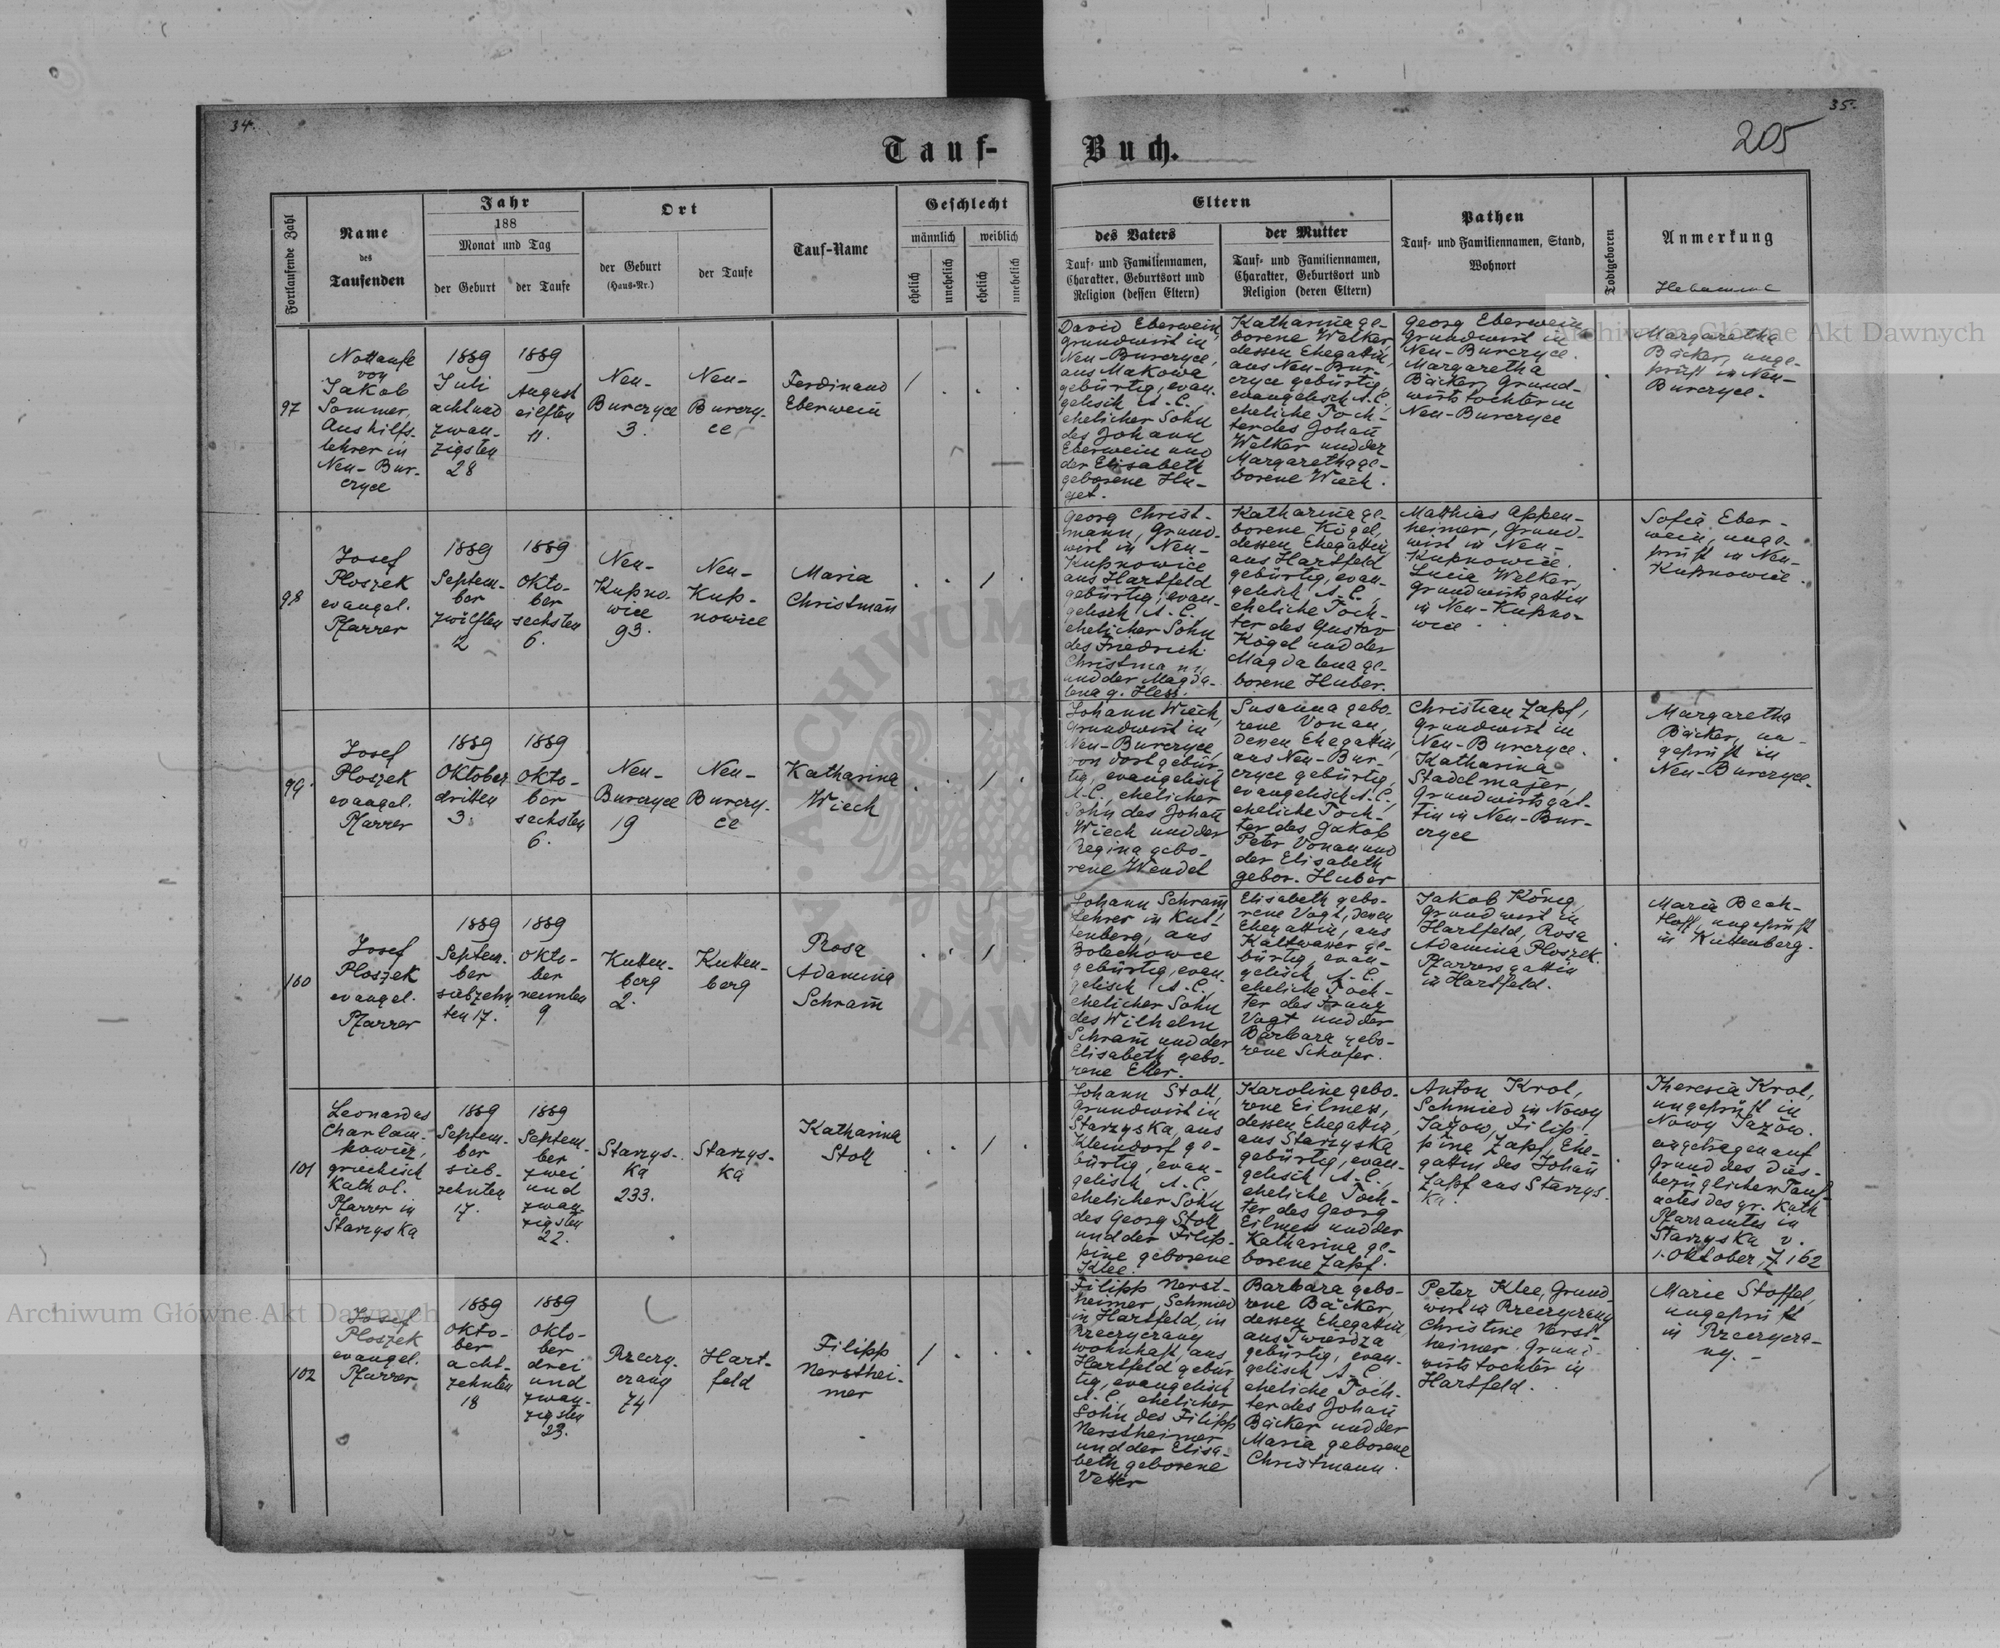 34.
35.
205
Tauf-
Buch.
Fortlaufende Zahl
Name
des
Taufenden
Jahr
188
Monat und Tag
der Geburt
der Taufe
Ort
der Geburt
(Haus-Nr.)
der Taufe
Tauf-Name
Geschlecht
männlich
weiblich
ehelich
unehelich
ehelich
unehelich
Eltern
des Vaters
Tauf- und Familiennamen,
Charakter, Geburtsort und
Religion (dessen Eltern)
der Mutter
Tauf- und Familiennamen,
Charakter, Geburtsort und
Religion (deren Eltern)
Pathen
Tauf- und Familiennamen, Stand,
Wohnort
Todtgeboren
Anmerkung
Hebamme
97
Nottaufe
von
Jakob
Sommer,
Aushilfs-
lehrer in
Neu-Bur-
czyce
1889
Juli
achtund
zwan-
zigsten
28
1889
August
eilften
11.
Neu-
Burczyce
3.
Neu-
Burczy-
ce
Ferdinand
Eberwein
/
David Eberwein,
Grundwirt in
Neu-Burczyce,
aus Makowa
gebürtig, evan-
gelisch A.C.,
ehelicher Sohn
des Johann
Eberwein und
der Elisabeth
geborene Hu-
get.
Katharina ge-
borene Welker,
dessen Ehegattin,
aus Neu-Bur-
czyce gebürtig,
evangelisch A.C.,
eheliche Toch-
ter des Johañ
Welker und der
Margaretha ge-
borene Wiech.
Georg Eberwein
Grundwirt in
Neu-Burczyce.
Margaretha
Bäcker, Grund-
wirtstochter in
Neu-Burczyce
Margaretha
Bäcker, unge-
prüft in Neu-
Burczyce.
98
Josef
Ploszek
evangel.
Pfarrer
1889
Septem-
ber
zwölften
12
1889
Okto-
ber
sechsten
6.
Neu-
Kupno-
wice
93.
Neu-
Kup-
nowice
Maria
Christmañ
/
Georg Christ-
mann, Grund-
wirt in Neu-
Kupnowice
aus Hartfeld
gebürtig, evan-
gelisch A.C.
ehelicher Sohn
des Friedrich
Christmann
und der Magda-
lena g. Hess.
Katharina ge-
borene Kögel,
dessen Ehegattin
aus Hartfeld
gebürtig, evan-
gelisch A.C.,
eheliche Toch-
ter des Gustav
Kögel und der
Magdalena ge-
borene Huber.
Matthias Appen-
heimer, Grund-
wirt in Neu-
Kupnowice.
Lucia Welker,
Grundwirtsgattin
in Neu-Kupno-
wice
Sofia Eber-
wein, unge-
prüft in Neu-
Kupnowice.
99.
Josef
Ploszek
evangel.
Pfarrer
1889
Oktober
dritten
3.
1889
Okto-
ber
sechsten
6.
Neu-
Burczyce
19
Neu-
Burczy-
ce
Katharina
Wiech
/
Johann Wiech,
Grundwirt in
Neu-Burczyce,
von dort gebür-
tig, evangelisch
A.C., ehelicher
Sohn des Johañ
Wiech und der
Regina gebo-
rene Wendel
Susanna gebo-
rene Vonau,
dessen Ehegattin,
aus Neu-Bur-
czyce gebürtig,
evangelisch A.C.,
eheliche Toch-
ter des Jakob
Peter Vonau und
der Elisabeth
gebor. Huber
Christian Zapf,
Grundwirt in
Neu-Burczyce.
Katharina
Stadelmajer,
Grundwirtsgat-
tin in Neu-Bur-
czyce
Margaretha
Bäcker, un-
geprüft in
Neu-Burczyce.
100
Josef
Ploszek
evangel.
Pfarrer
1889
Septem-
ber
siebzehn
ten 17.
1889
Okto-
ber
neunten
9
Kutten-
berg
2.
Kutten-
berg
Rosa
Adamina
Schram̃
/
Johann Schram̃
Lehrer in Kut-
tenberg, aus
Bolechowce
gebürtig, evan-
gelisch A.C.,
ehelicher Sohn
des Wilhelm
Schram̃ und der
Elisabeth gebo-
rene Etter.
Elisabeth gebo-
rene Vogt, dessen
Ehegattin, aus
Kaltwasser ge-
bürtig, evan-
gelisch A.C.
eheliche Toch-
ter des Franz
Vogt und der
Barbara gebo-
rene Schäfer.
Jakob König
Grundwirt in
Hartfeld, Rosa
Adamina Ploszek
Pfarrersgattin
in Hartfeld.
Maria Bech-
tloff, ungeprüft
in Kuttenberg.
101
Leonardus
Charlam-
powicz,
griechisch
kathol.
Pfarrer in
Starzyska
1889
Septem-
ber
sieb-
zehnten
17.
1889
Septem-
ber
zwei
und
zwan-
zigsten
22.
Starzys-
ka
233.
Starzys-
ka
Katharina
Stoll
/
Johann Stoll,
Grundwirt in
Starzyska, aus
Kleindorf ge-
bürtig, evan-
gelisch A.C.
ehelicher Sohn
des Georg Stoll
und der Filip-
pine geborene
Klee.
Karoline gebo-
rene Eilmess,
dessen Ehegattin,
aus Starzyska
gebürtig, evan-
gelisch A.C.,
eheliche Toch-
ter des Georg
Eilmess und der
Katharina ge-
borene Zapf.
Anton Krol,
Schmied in Nowy
Jazow, Filip-
pine Zapf, Ehe-
gattin des Johañ
Zapf aus Starzys-
ka.
Theresia Krol,
ungeprüft in
Nowy Jazow.
eingetragen auf
Grund des dies-
bezüglichen Tauf-
actes des gr. kath
Pfarramtes in
Starzyska v.
1. Oktober, Z 162
102
Josef
Ploszek
evangel.
Pfarrer
1889
Okto-
ber
acht-
zehnten
18
1889
Okto-
ber
drei
und
zwan-
zigsten
23.
Rzeczy-
czany
74
Hart-
feld
Filipp
Nersthei-
mer
/
Filipp Nerst-
heimer, Schmied
in Hartfeld, in
Rzeczyczany
wohnhaft aus
Hartfeld gebür-
tig, evangelisch
A.C., ehelicher
Sohn des Filipp
Nerstheimer
und der Elisa-
beth geborene
Vetter
Barbara gebo-
rene Bäcker,
dessen Ehegattin,
aus Twierdza
gebürtig, evan-
gelisch A.C.,
eheliche Toch-
ter des Johañ
Bäcker und der
Maria geborene
Christmann.
Peter Klee, Grund-
wirt in Rzeczyczany
Christine Nerst-
heimer Grund-
wirtstochter in
Hartfeld.
Marie Stoffel,
ungeprüft
in Rzeczycza-
ny.
Archiwum Główne Akt Dawnych
Archiwum Główne Akt Dawnych